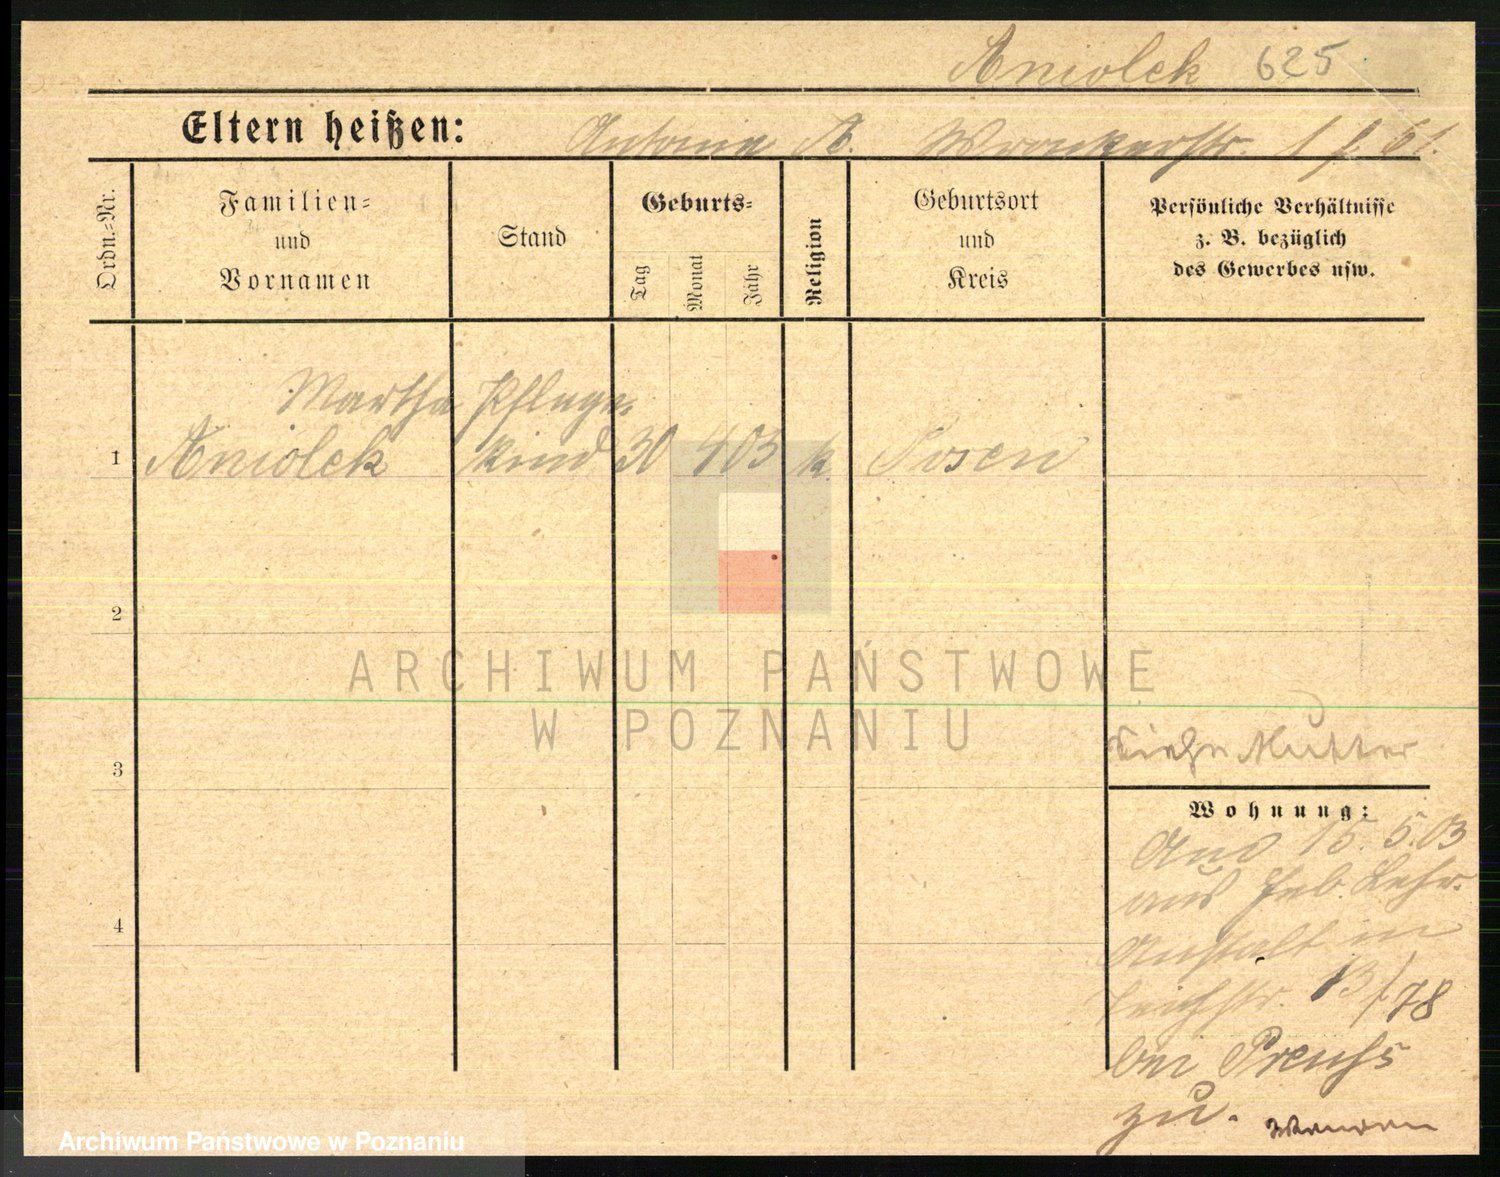 Aniolek 625
Eltern heißen:
Antonie A. Wronkerstr. 1 f. 51.
Ordn.-Nr.
Familien-
und
Vornamen
Stand
Geburts-
Tag
Monat
Jahr
Religion
Geburtsort
und
Kreis
Persönliche Verhältnisse
z. B. bezüglich
des Gewerbes usw.
Martha Pflege-
1 Aniolek kind 30 4 03 k. Posen
2
ARCHIWUM PAŃSTWOWE
W POZNANIU
Siehe Mutter
3
Wohnung:
15.5.03
aus Heb. Lehr-
4
Anstalt in
Teichstr. 13/78
bei Preuß
zu.
Archiwum Państwowe w Poznaniu